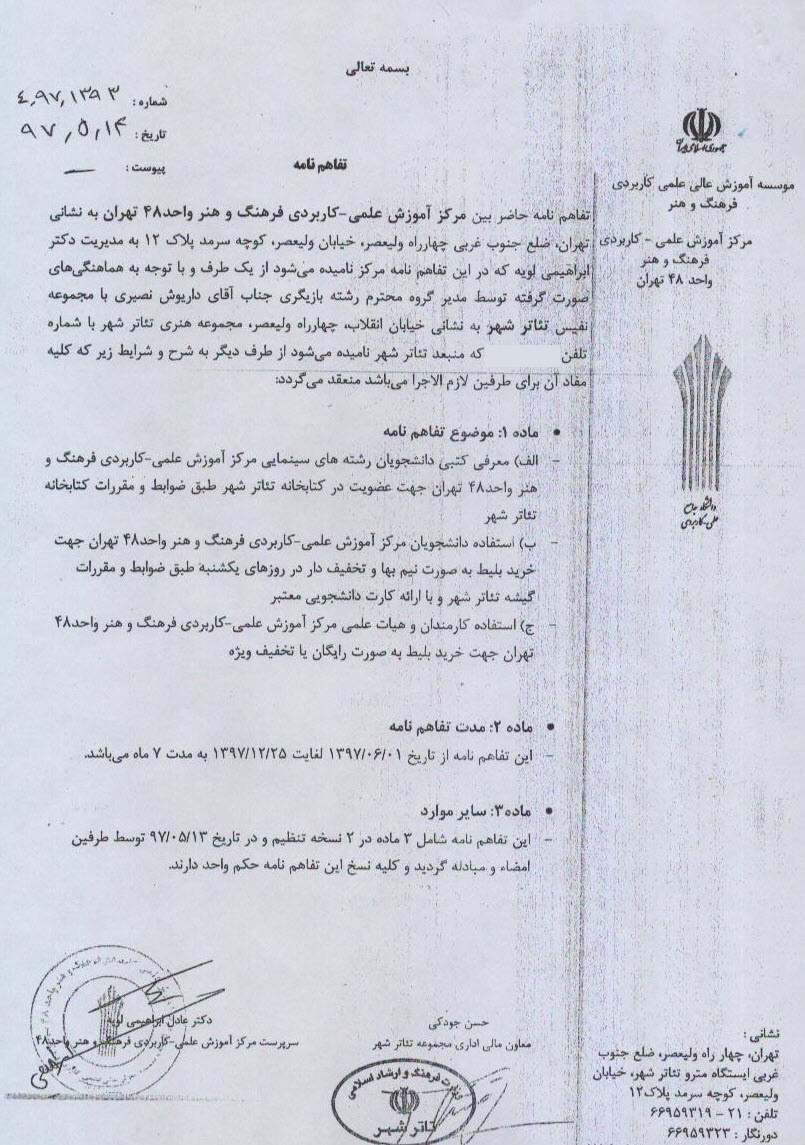 بسمه تعالی
شماره : ۴,۹۷,۱۳۹۳
تاریخ : ۹۷,۵,۱۴
پیوست : —
جمهوری اسلامی ایران
موسسه آموزش عالی علمی کاربردی
فرهنگ و هنر
مرکز آموزش علمی - کاربردی
فرهنگ و هنر
واحد ۴۸ تهران
دانشگاه جامع
علمی-کاربردی
تفاهم نامه
تفاهم نامه حاضر بین مرکز آموزش علمی-کاربردی فرهنگ و هنر واحد۴۸ تهران به نشانی
تهران، ضلع جنوب غربی چهارراه ولیعصر، خیابان ولیعصر، کوچه سرمد پلاک ۱۲ به مدیریت دکتر
ابراهیمی لویه که در این تفاهم نامه مرکز نامیده می‌شود از یک طرف و با توجه به هماهنگی‌های
صورت گرفته توسط مدیر گروه محترم رشته بازیگری جناب آقای داریوش نصیری با مجموعه
نفیس تئاتر شهر به نشانی خیابان انقلاب، چهارراه ولیعصر، مجموعه هنری تئاتر شهر با شماره
تلفن که منبعد تئاتر شهر نامیده می‌شود از طرف دیگر به شرح و شرایط زیر که کلیه
مفاد آن برای طرفین لازم الاجرا می‌باشد منعقد می‌گردد:
• ماده ۱: موضوع تفاهم نامه
- الف) معرفی کتبی دانشجویان رشته های سینمایی مرکز آموزش علمی-کاربردی فرهنگ و
هنر واحد۴۸ تهران جهت عضویت در کتابخانه تئاتر شهر طبق ضوابط و مقررات کتابخانه
تئاتر شهر
- ب) استفاده دانشجویان مرکز آموزش علمی-کاربردی فرهنگ و هنر واحد۴۸ تهران جهت
خرید بلیط به صورت نیم بها و تخفیف دار در روزهای یکشنبه طبق ضوابط و مقررات
گیشه تئاتر شهر و با ارائه کارت دانشجویی معتبر
- ج) استفاده کارمندان و هیات علمی مرکز آموزش علمی-کاربردی فرهنگ و هنر واحد۴۸
تهران جهت خرید بلیط به صورت رایگان یا تخفیف ویژه
• ماده ۲: مدت تفاهم نامه
- این تفاهم نامه از تاریخ ۱۳۹۷/۰۶/۰۱ لغایت ۱۳۹۷/۱۲/۲۵ به مدت ۷ ماه می‌باشد.
• ماده۳: سایر موارد
- این تفاهم نامه شامل ۳ ماده در ۲ نسخه تنظیم و در تاریخ ۹۷/۰۵/۱۳ توسط طرفین
امضاء و مبادله گردید و کلیه نسخ این تفاهم نامه حکم واحد دارند.
حسن جودکی
معاون مالی اداری مجموعه تئاتر شهر
دکتر عادل ابراهیمی لویه
سرپرست مرکز آموزش علمی-کاربردی فرهنگ و هنر واحد۴۸
وزارت فرهنگ و ارشاد اسلامی
تئاتر شهر
نشانی :
تهران، چهار راه ولیعصر، ضلع جنوب
غربی ایستگاه مترو تئاتر شهر، خیابان
ولیعصر، کوچه سرمد پلاک۱۲
تلفن : ۲۱ - ۶۶۹۵۹۳۱۹
دورنگار : ۶۶۹۵۹۳۲۳